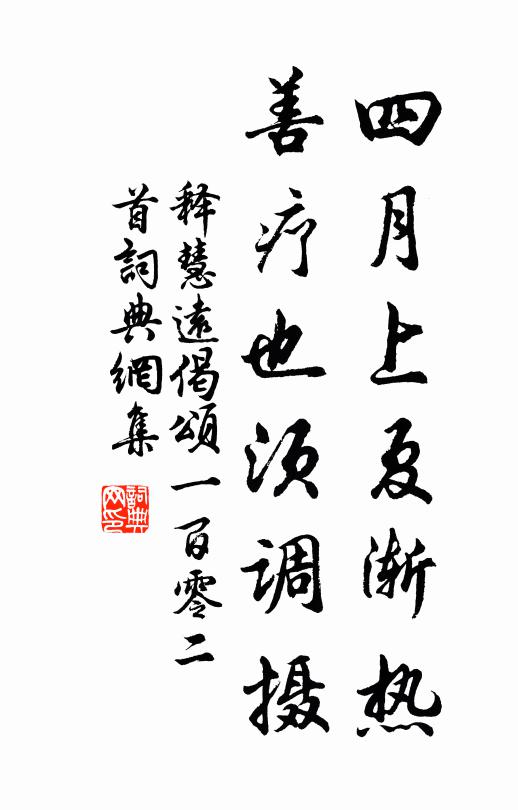 四月上夏渐热
善疗也须调摄
释慧遠偈頌一百零二
首詞典網集
詞典网印